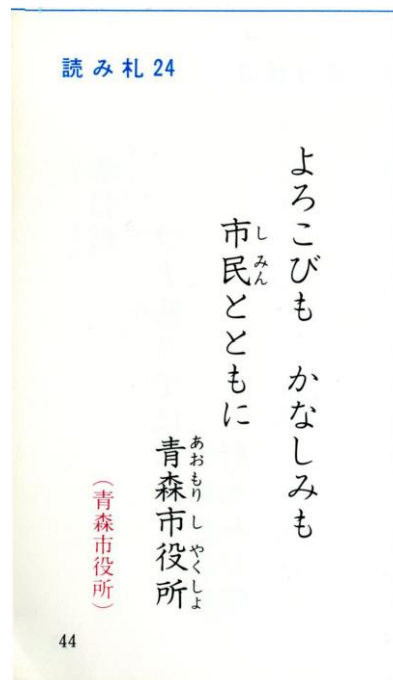 読み札 24
よろこびも　かなしみも
市民とともに
しみん
青森市役所
あおもりしやくしょ
（青森市役所）
44